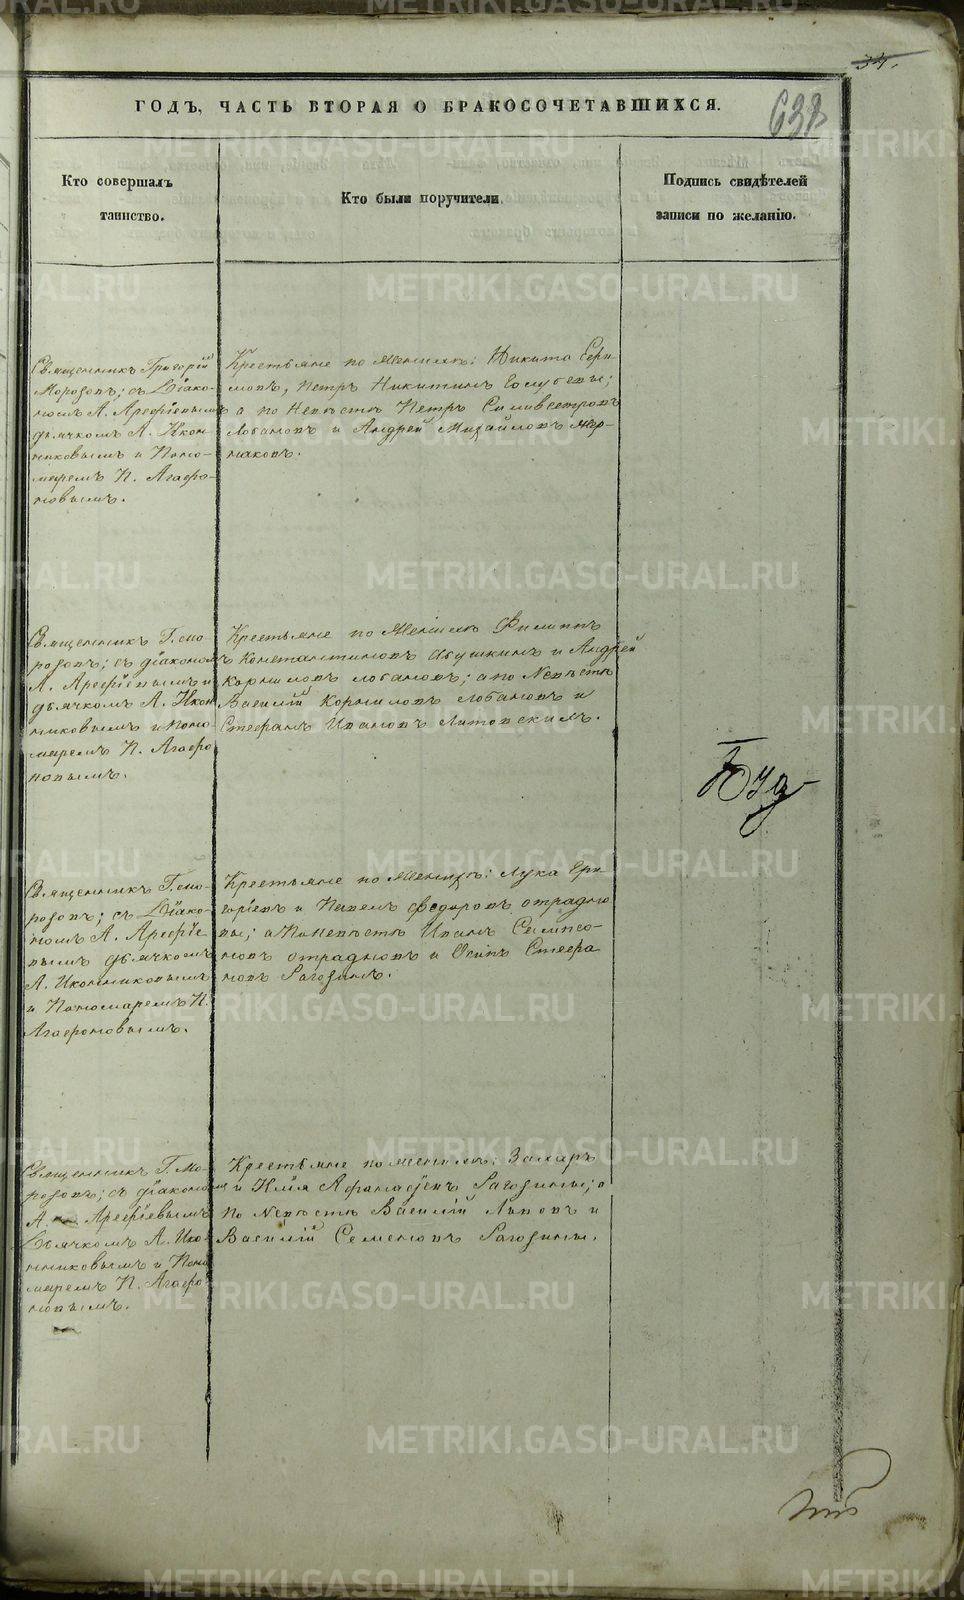 34.
ГОДЪ, ЧАСТЬ ВТОРАЯ О БРАКОСОЧЕТАВШИХСЯ.
638
Кто совершалъ
таинство.
Кто были поручители.
Подпись свидѣтелей
записи по желанію.
Священникъ Григорій
Морозовъ; съ Діако-
номъ А. Арефіевымъ
дьячкомъ А. Икон-
никовымъ и Поно-
маремъ П. Агафо-
новымъ.
Крестьяне по Женихѣ: Никита
Петръ Никитинъ Голубевы;
а по Невѣстѣ Петръ Силивестровъ
Лобановъ и Андрей Михайловъ
Священникъ Г. Мо-
розовъ; съ діакономъ
А. Арефіевымъ и
дьячкомъ А. Икон
никовымъ и Поно-
маремъ П. Агафо
новымъ.
Крестьяне по Женихѣ Филиппъ
Константиновъ и Андрей
Корниловъ Лобановъ; а по Невѣстѣ
Василій Корниловъ Лобановъ и
Стефанъ Ивановъ Литовскимъ.
Священникъ Г. Мо-
розовъ; съ Діако-
номъ А. Арефіе
вымъ дьячкомъ
А. Иконниковымъ
и Пономаремъ П.
Агафоновымъ.
Крестьяне по Женихѣ: Лука Гри
горіевъ и Павелъ Федоровъ Отрадно
вы; а По невѣстѣ Иванъ Сампсо-
новъ Отрадновъ и Осипъ Стефа
новъ Рагозинъ.
Священникъ Г. Мо-
розовъ; съ діаконо
А. Арефіевымъ
Дьячкомъ А. Ико-
нниковымъ и Поно
маремъ П. Агафо
новымъ.
Крестьяне по женихѣ: Захаръ
и Илія Афанасьевъ Рагозины; а
по Невѣстѣ Василій Львовъ и
Василій Семеновъ Рагозины.
METRIKI.GASO-URAL.RU